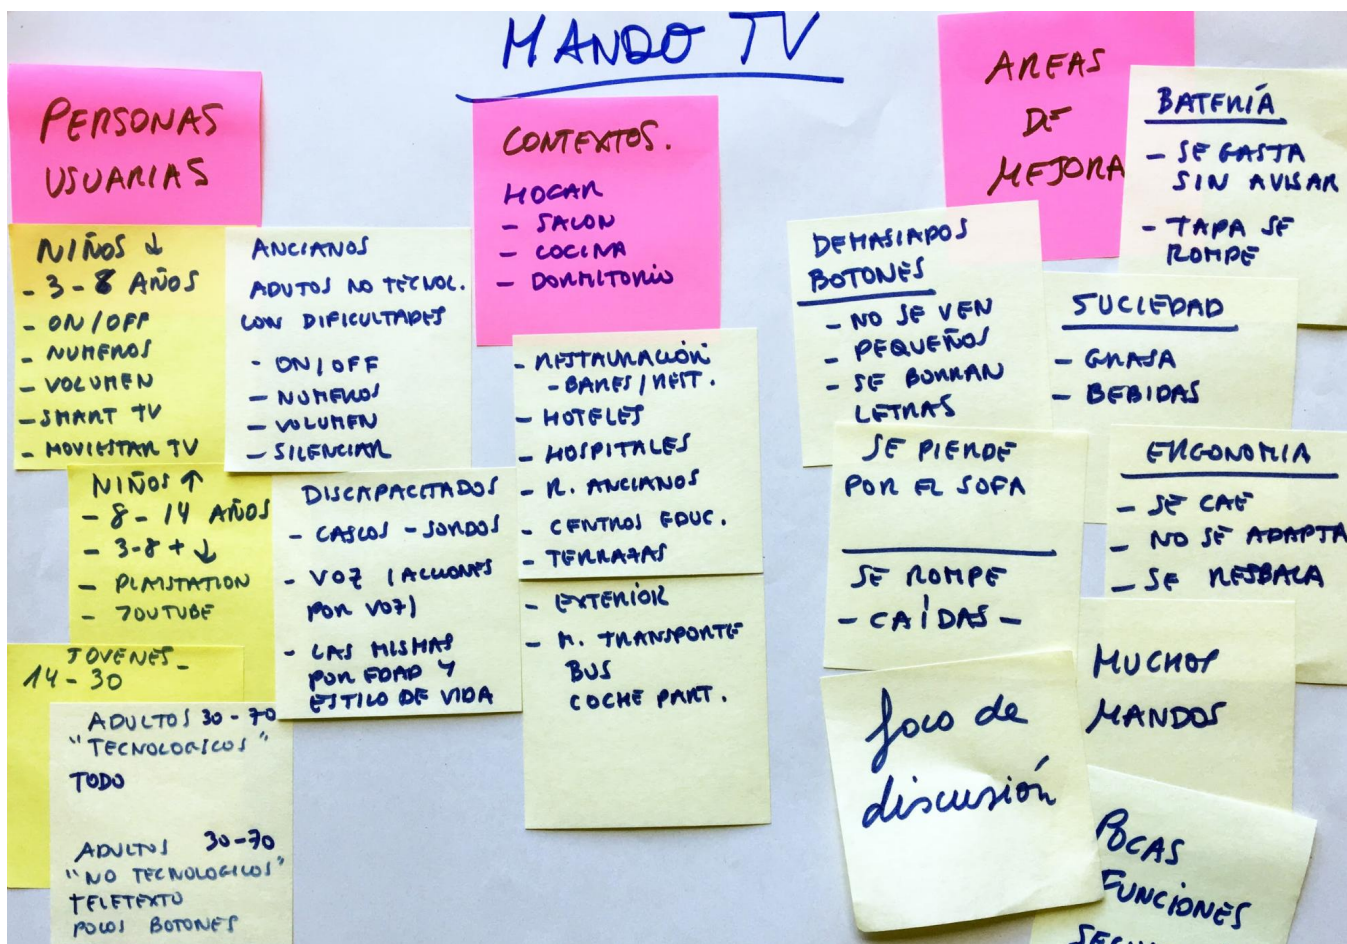 MANDO TV
PERSONAS
USUARIAS
NIÑOS ↓
- 3 - 8 AÑOS
- ON/OFF
- NUMEROS
- VOLUMEN
- SMART TV
- MOVIESTAR TV
NIÑOS ↑
- 8 - 14 AÑOS
- 3-8 + ↓
- PLAYSTATION
- YOUTUBE
JOVENES -
14 - 30
ADULTOS 30 - 70
"TECNOLOGICOS"
TODO
ADULTOS 30-70
"NO TECNOLOGICOS"
TELETEXTO
POCOS BOTONES
ANCIANOS
ADUTOS NO TECNOL.
CON DIFICULTADES
- ON/OFF
- NUMEROS
- VOLUMEN
- SILENCIAR
DISCAPACITADOS
- CASCOS - SORDOS
- VOZ (ACCIONES
POR VOZ)
- LAS MISMAS
POR EDAD Y
ESTILO DE VIDA
CONTEXTOS.
HOGAR
- SALON
- COCINA
- DORMITORIO
- RESTAURACIÓN
- BARES/REST.
- HOTELES
- HOSPITALES
- R. ANCIANOS
- CENTROS EDUC.
- TERRAZAS
- EXTERIOR
- M. TRANSPORTE
BUS
COCHE PART.
AREAS
DE
MEJORA
BATERÍA
- SE GASTA
SIN AVISAR
- TAPA SE
ROMPE
DEMASIADOS
BOTONES
- NO SE VEN
- PEQUEÑOS
- SE BORRAN
LETRAS
SUCIEDAD
- GRASA
- BEBIDAS
SE PIERDE
POR EL SOFA
SE ROMPE
- CAÍDAS -
ERGONOMIA
- SE CAE
- NO SE ADAPTA
- SE RESBALA
MUCHOS
MANDOS
foco de
discusión
POCAS
FUNCIONES